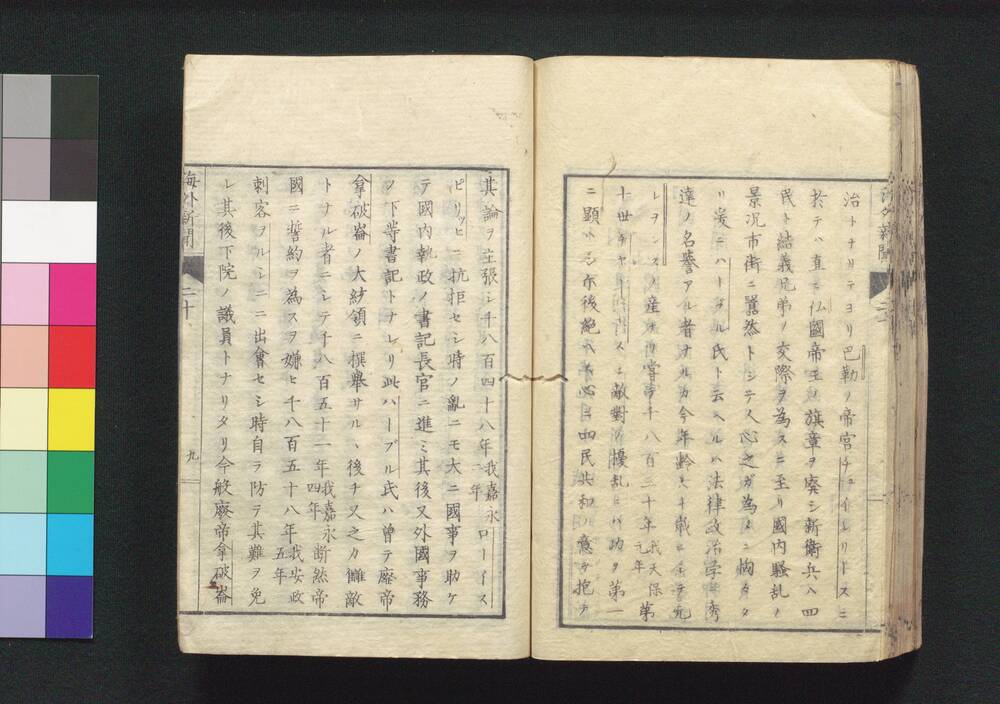 治トナリテヨリ巴勒ノ帝宮チユイルリースニ
於テハ直ニ仏國帝王ノ旗章ヲ廃シ新衛兵ハ四
民ト結義兄弟ノ交際ヲ為スニ至リ國内騒乱ノ
景況市街ニ囂然トシテ人心之カ為メニ恟々タ
リ爰ニハーブル氏ト云ヘルハ法律政治学ニ秀
達ノ名誉アル者ナルカ今年齢
レヲンスノ産ニ 嘗テ千八百三十年我天保元年第
十世チヤー スニ敵對 擾乱ニハ功ヲ第一
ニ顕ハシ 後絶ヘス心ニ四民共和ノ意ヲ抱キ
其論ヲ主張シ千八百四十八年我嘉永二年ローイス
ピリッヒニ抗拒セシ時ノ亂ニモ大ニ國事ヲ助ケ
テ國内執政ノ書記長官ニ進ミ其後又外國事務
ノ下等書記トナレリ此ハーブル氏ハ曽テ廢帝
拿破崙ノ大紗領ニ撰舉サルヽ後チ又之カ讎敵
トナル者ニシテ千八百五十一年我嘉永四年断然帝
國ニ誓約ヲ為スヲ嫌ヒ千八百五十八年我安政五年
刺客ヲルシニニ出會セシ時自ラ防テ其難ヲ免
レ其後下院ノ議員トナリタリ今般廢帝拿破崙
海外新聞 二十 九